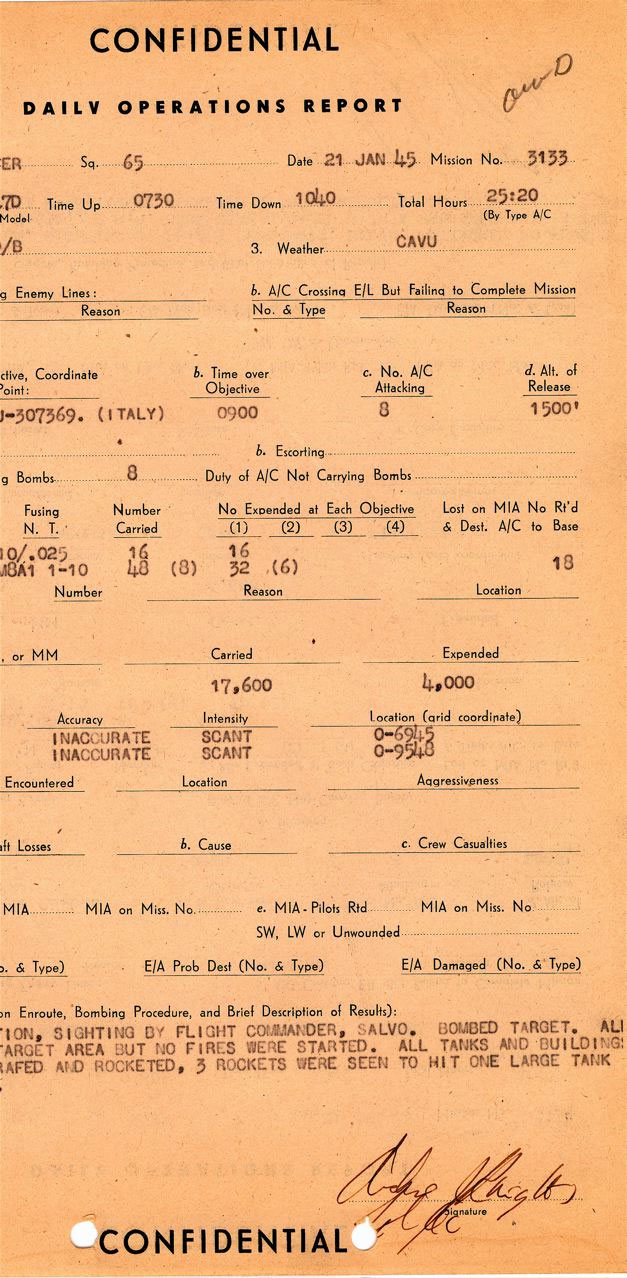 CONFIDENTIAL
DAILY OPERATIONS REPORT
ER Sq. 65 Date 21 JAN 45 Mission No. 3133
70 Time Up 0730 Time Down 1040 Total Hours 25:20
Model (By Type A/C
/B 3. Weather CAVU
g Enemy Lines: b. A/C Crossing E/L But Failing to Complete Mission
Reason No. & Type Reason
ctive, Coordinate b. Time over c. No. A/C d. Alt. of
Point: Objective Attacking Release
-307369. (ITALY) 0900 8 1500'
b. Escorting
g Bombs 8 Duty of A/C Not Carrying Bombs
Fusing Number No Expended at Each Objective Lost on MIA No Rt'd
N. T. Carried (1) (2) (3) (4) & Dest. A/C to Base
10/.025 16 16
M8A1 1-10 48 (8) 32 (6) 18
Number Reason Location
, or MM Carried Expended
17,600 4,000
Accuracy Intensity Location (grid coordinate)
INACCURATE SCANT O-6945
INACCURATE SCANT O-9548
Encountered Location Aggressiveness
aft Losses b. Cause c. Crew Casualties
MIA MIA on Miss. No. e. MIA-Pilots Rtd MIA on Miss. No
SW, LW or Unwounded
o. & Type) E/A Prob Dest (No. & Type) E/A Damaged (No. & Type)
on Enroute, Bombing Procedure, and Brief Description of Results):
TION, SIGHTING BY FLIGHT COMMANDER, SALVO. BOMBED TARGET. ALL
TARGET AREA BUT NO FIRES WERE STARTED. ALL TANKS AND BUILDINGS
RAFED AND ROCKETED, 3 ROCKETS WERE SEEN TO HIT ONE LARGE TANK
Signature
CONFIDENTIAL